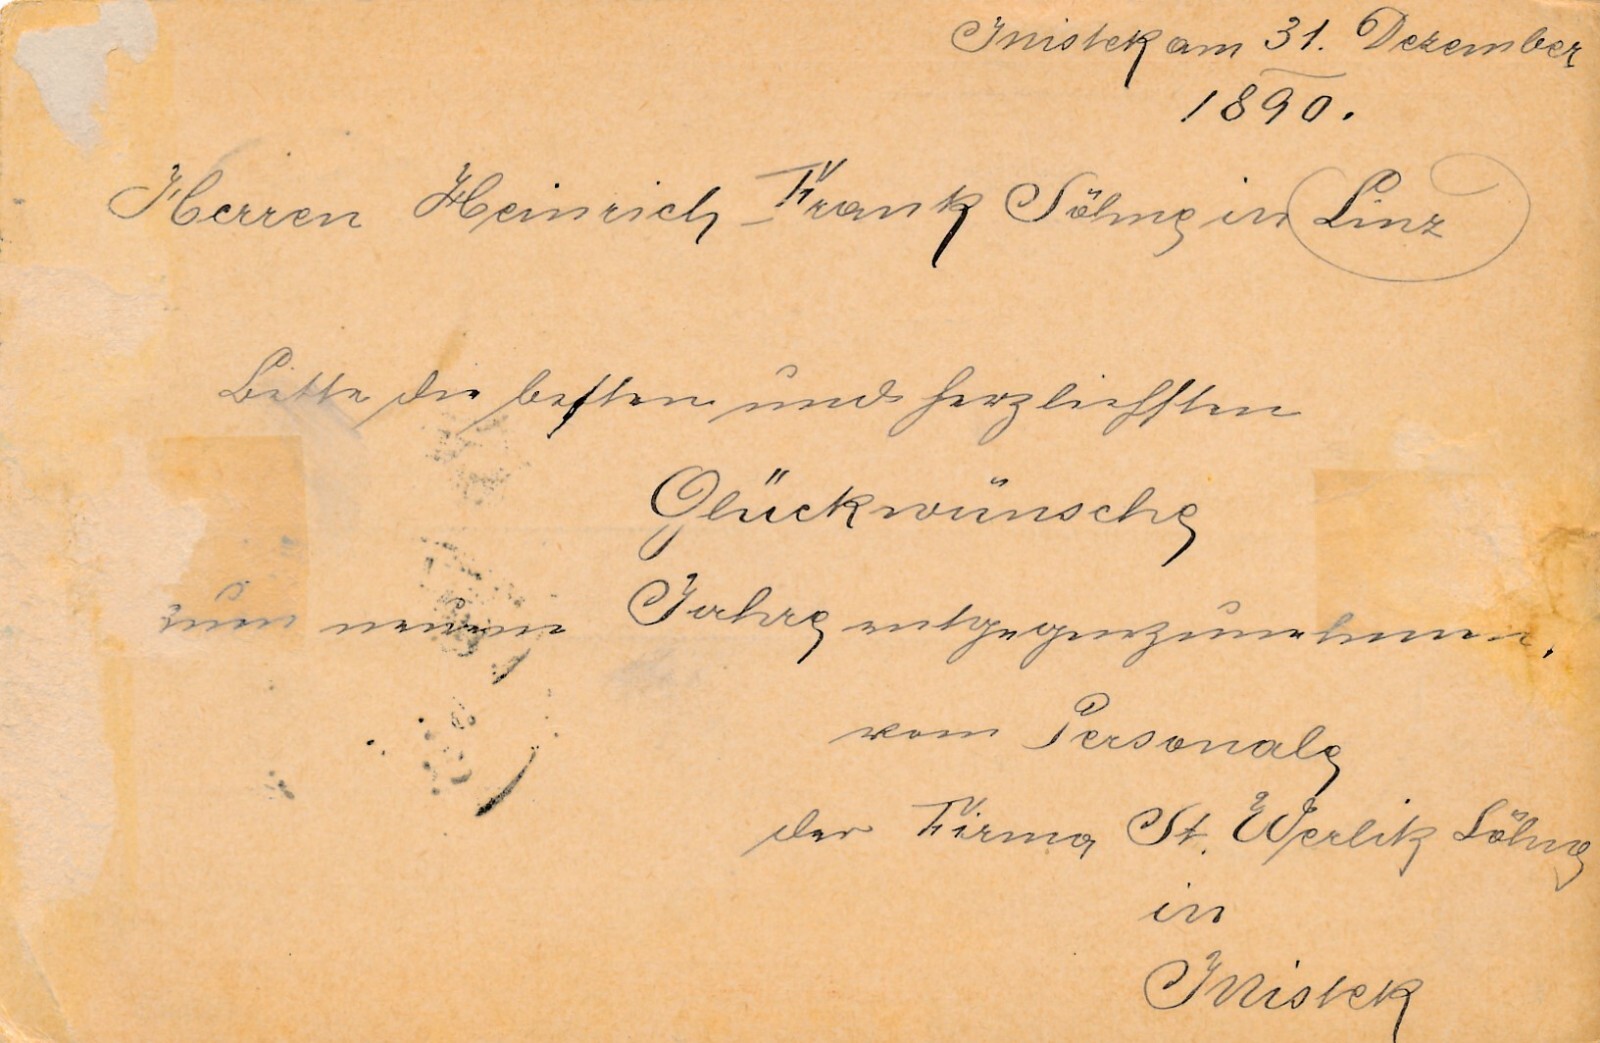 Mistek am 31. Dezember
1890.
Herren Heinrich Frank Söhne in Linz
Bitte die besten und herzlichsten
Glückwünsche
zum neuen Jahre entgegenzunehmen.
vom Personale
der Firma St. Werlik Söhne
in
Mistek